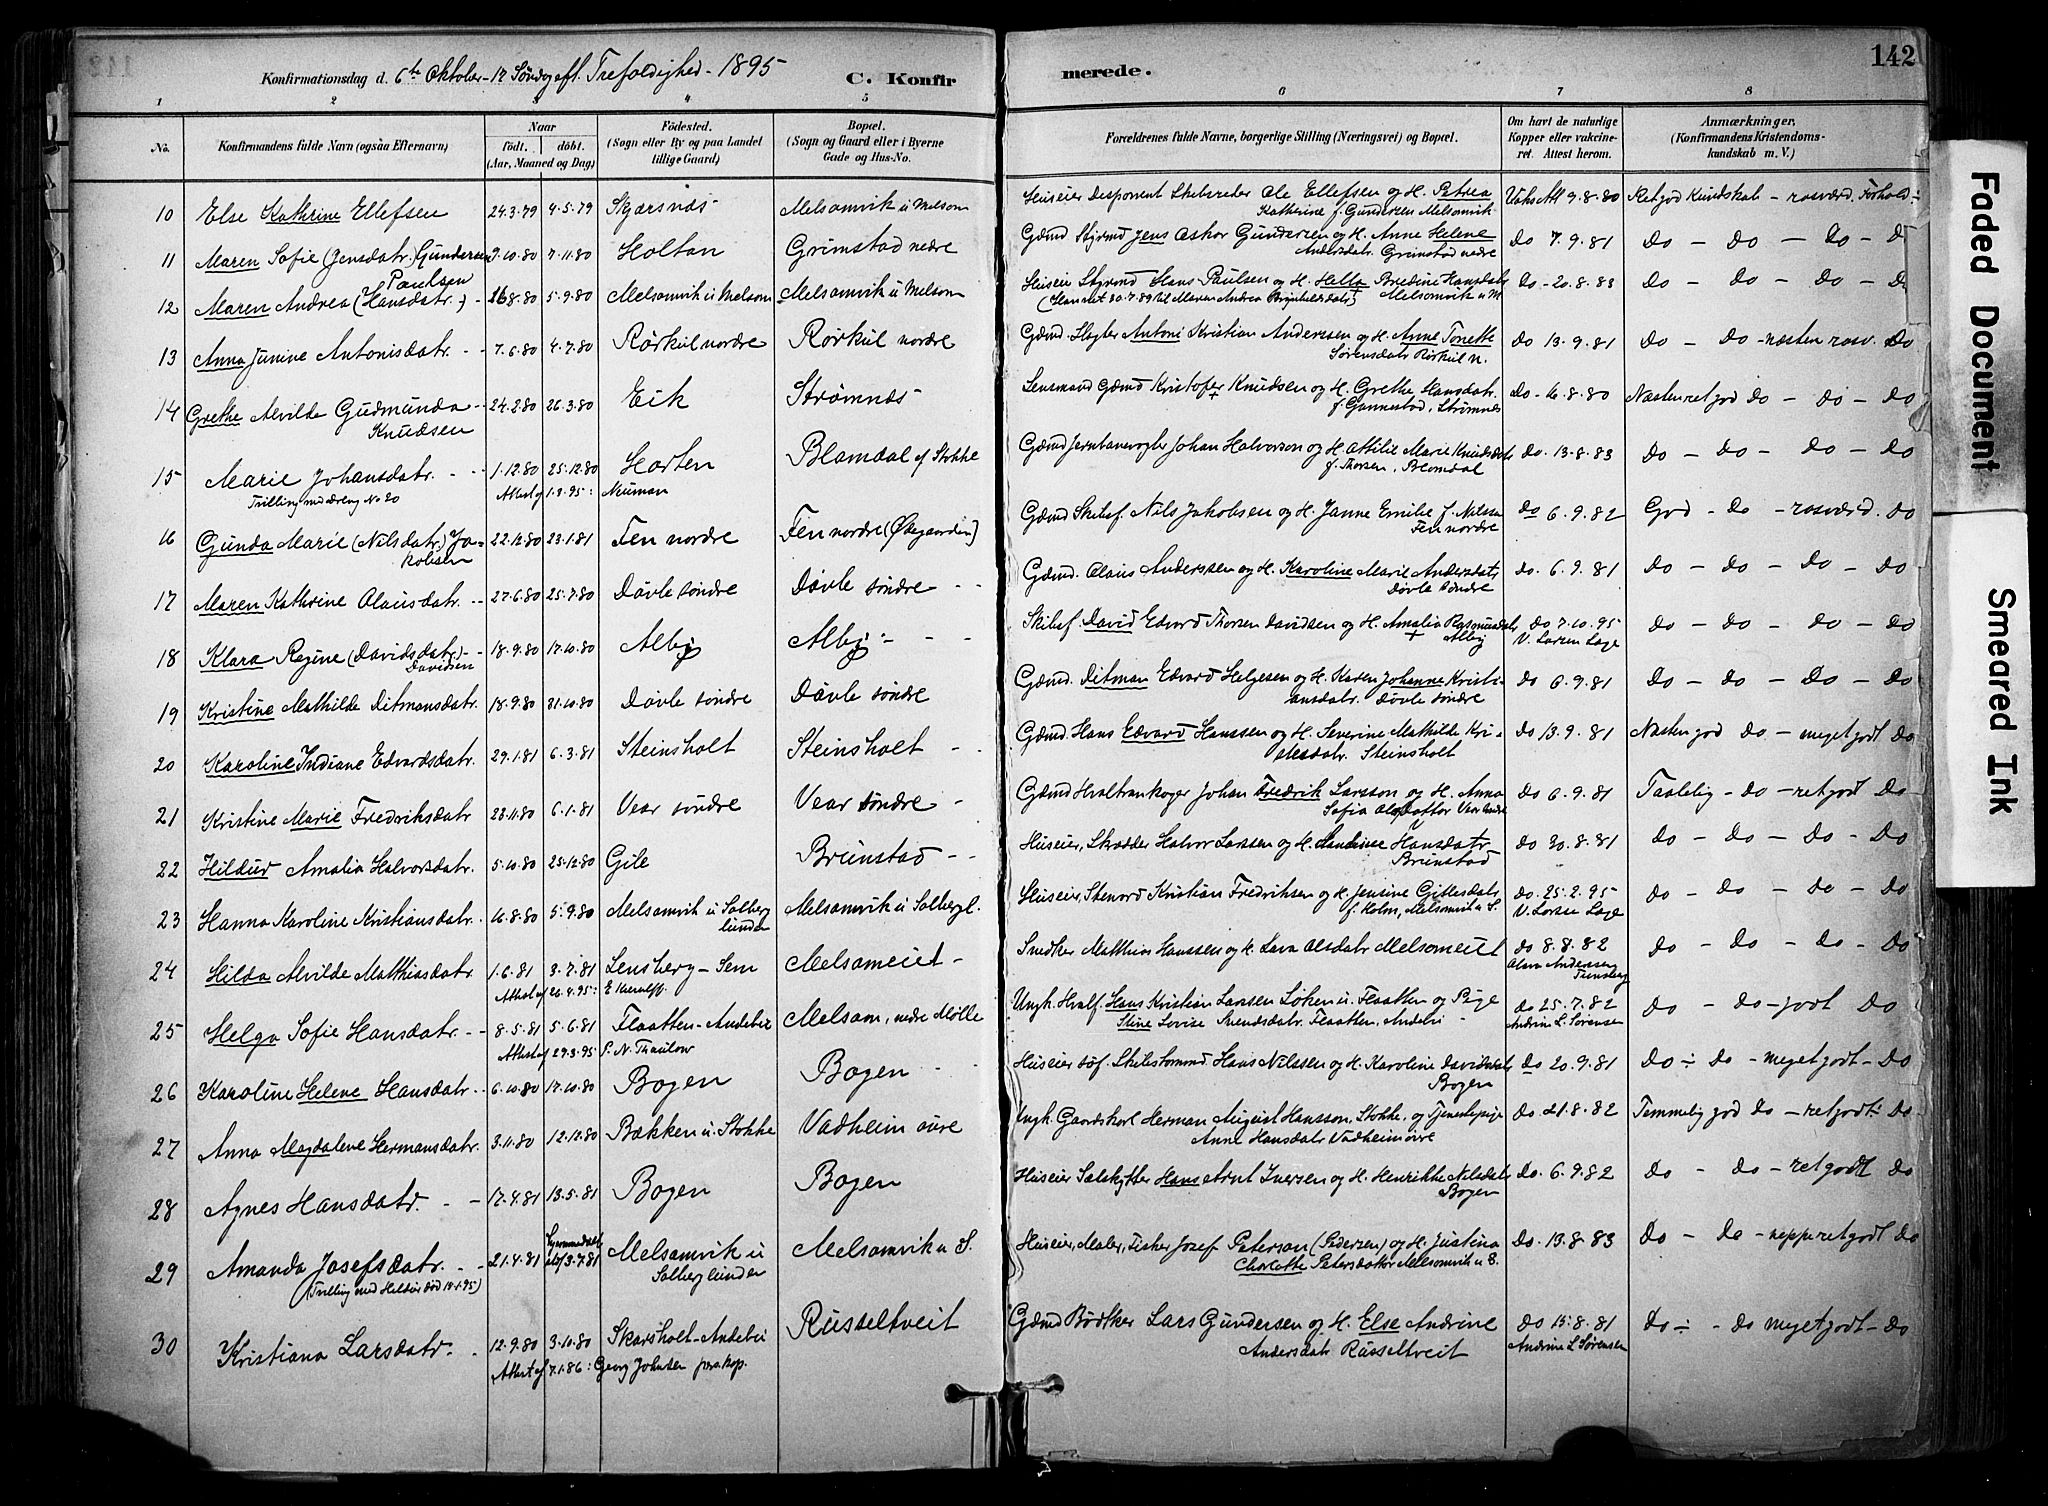 142
Konfirmationsdag d. 6te Oktober - 17 Søndag eft. Trefoldighed - 1895
C. Konfirmerede.
1 2 3 4 5 6 7 8
No.
Konfirmandens fulde Navn (ogsaa Efternavn)
Naar
født. døbt.
(Aar, Maaned og Dag)
Födested.
(Sogn eller By og paa Landet tillige Gaard)
Bopæl.
(Sogn og Gaard eller i Byerne Gade og Hus-No.
Forældrenes fulde Navne, borgerlige Stilling (Næringsvei) og Bopæl.
Om havt de naturlige Kopper eller vaccineret. Attest herom.
Anmærkninger,
(Konfirmandens Kristendomskundskab m. V.)
10 Else Kathrine Ellefsen 24.3.79 4.5.79 Skjærsnæs Melsomvik u Melsom Huseier Desponent Skibsreder Ole Ellefsen og H. Petrea Kathrine f. Gundersen Melsomvik Vaks Att 9.8.80 Ret god Kundskab - rosværd. Forhold
11 Maren Sofie (Jensdatr.) Gundersen 9.10.80 7.11.80 Holtan Grimstad nedre Gdmd Styrmd Jens Askor Gundersen og H. Anne Helene Andersdatr. Grimstad nedre Do 7.9.81 Do - Do - Do - D
12 Maren Andrea (Hansdatr.) Paulsen 26.8.80 5.9.80 Melsomvik u Melsom Melsomvik u Melsom Huseier Styrmd Hans Paulsen og H. Hella Bredine Hansdatr. Melsomvik u M Do - 20.8.83 Do - Do - Do - D
13 Anna Junine Antonisdatr. 7.6.80 4.7.80 Rørkul nordre Rørkul nordre Gdmd Slagter Antoni Kristian Anderssen og H. Anne Tonette Sørensdatr Rørkul n. Do 13.9.81 Do - Do - næsten rosv. Do
14 Grethe Alvilde Gudmunda Knudsen 24.2.80 26.3.80 Eik Strømnes Lensmand Gdmd Kristofer Knudsen og H. Grethe Hansdatr. f. Gunnestad, Strømnes Do - 16.8.80 Næsten ret god Do - Do - Do
15 Marie Johansdatr. 1.12.80 25.12.80 Horten Blomdal af Stokke Gdmd Jernbanevogter Johan Halvorsen og H. Attilie Marie Knudsdatr f. Thorsen, Blomdal Do. 13.8.83 Do - Do - Do - Do
Tvilling med dreng No 20 Attest af 1.3.95: Neuman
16 Gunda Marie (Nilsdatr.) Jakobsen 22.12.80 23.1.81 Fen nordre Fen nordre (Ødegaarden) Gdmd Skibsf. Nils Jakobsen og H. Janne Emilie f. Nilssen Fen nordre do 6.9.82 God - Do - rosværd. Do
17 Maren Kathrine Olausdatr. 27.6.80 25.7.80 Døvle søndre Døvle søndre Gdmd. Olaus Anderssen og H. Karoline Marie Andersdatr Døvle søndre Do. 6.9.81 Do - Do - Do - Do
18 Klara Regine (Davidsdatr.) Davidsen 18.9.80 17.10.80 Alby Alby Skibsf. David Edvard Thorsen Davidsen og H. Amalia Rasmusdatr Alby Do 7.10.95 V. Lorsen Lage Do - Do - Do - Do
19 Kristine Mathilde Ditmansdatr. 18.9.80 31.10.80 Døvle søndre Døvle søndre Gdmd. Ditman Edvard Helgesen og H. Karen Johanne Kristiansdatr. Døvle søndre Do 6.9.81 Do - Do - Do - Do
20 Karoline Indiane Edvardsdatr. 29.1.81 6.3.81 Steinsholt Steinsholt Gdmd. Hans Edvard Hanssen og H. Severine Mathilde Steinsholt Do 13.9.81 Næsten god Do - meget godt Do
21 Kristine Marie Fredriksdatr 23.11.80 6.1.81 Vear søndre Vear søndre Gdmd Hvaltrankoger Johan Fredrik Larsson og H. Anna Sofia Olsdatter Vear søndre Do 6.9.81 Taalelig - do - ret godt Do
22 Hildur Amalia Halvorsdatr. 5.10.80 25.12.80 Gile Brunstad Huseier, Skrædder Halvor Larssen og H. Hansdatr Brunstad Do 30.8.81 Do - Do - Do - Do
23 Hanna Karoline Kristiansdatr. 16.8.80 5.9.80 Melsomvik u Solberg lunder Melsomvik u Solbergl. Huseier, Stenord Kristian Fredriksen og H. Jensine Gittesdatr f. Holm, Melsomvik u S. Do. 25.2.95 V. Lorsen Lage Do - Do - Do - Do
24 Hilda Alvilde Matthiasdatr 1.6.81 3.7.81 Lensberg - Sem Melsomeiet Snedker Matthias Hanssen og H. Lava Olsdatr Melsomeiet Do 8.8.82 Olava Anderssen Tunsberg Do - Do - Do - Do
Attest af 26.4.95:
25 Helga Sofie Hansdatr. 8.5.81 5.6.81 Flaatten - Andebu Melsom, nedre Mølle Ungk. Hvalf. Hans Kristian Larssen Løken u. Flaatten og Pige Stine Lovise Svendsdatr. Flaatten, Andebu Do 25.7.82 Andrine L. Sørensen Do - Do - godt Do
Attest af 29.3.95 P. N. Thaulow
26 Karoline Helene Hansdatr. 6.10.80 17.10.80 Bogen Bogen Huseier Søf. Skibstømmd. Hans Nilssen og H. Karoline Davidsdatr Bogen Do 20.9.81 Do - Do - meget godt - Do
27 Anna Magdalene Hermansdatr. 3.11.80 12.12.80 Bakken u. Stokke Vadheim øvre Ungk. Gaardskarl Herman August Hansson, Stokke, og Tjenestepige Anne Hansdatr Vadheim øvre Do 21.8.82 Temmelig god Do - ret godt - Do
28 Agnes Hansdatr. 17.4.81 13.5.81 Bogen Bogen Huseier Sælskytter Hans Arnt Iversen og H. Henrikke Nilsdatr Bogen Do. 6.9.82 Do - Do - ret godt Do
29 Amanda Josefsdatr. 21.4.81 Hjemmedøbt 3.7.81 Melsomvik u Solberglunder Melsomvik u. S. Huseier, Maler, Fisker Josef Peterson (Pedersen) og H. Justina Charlotte Petersdatter Melsomvik u S. Do. 13.8.83 Do - Do - neppe ret godt Do
(Tvilling med Hildur død 14.1.95)
30 Kristiana Larsdatr. 12.9.80 3.10.80 Skarsholt - Andebu Russeltveit Gdmd Bødtker Lars Gundersen og H. Else Andrine Andersdatr Russeltveit Do 15.8.81 Andrine L Sørensen Do - Do meget godt - Do
Attest af 7.1.86: Georg Johnsen pers. kap.
Faded Document
Smeared Ink